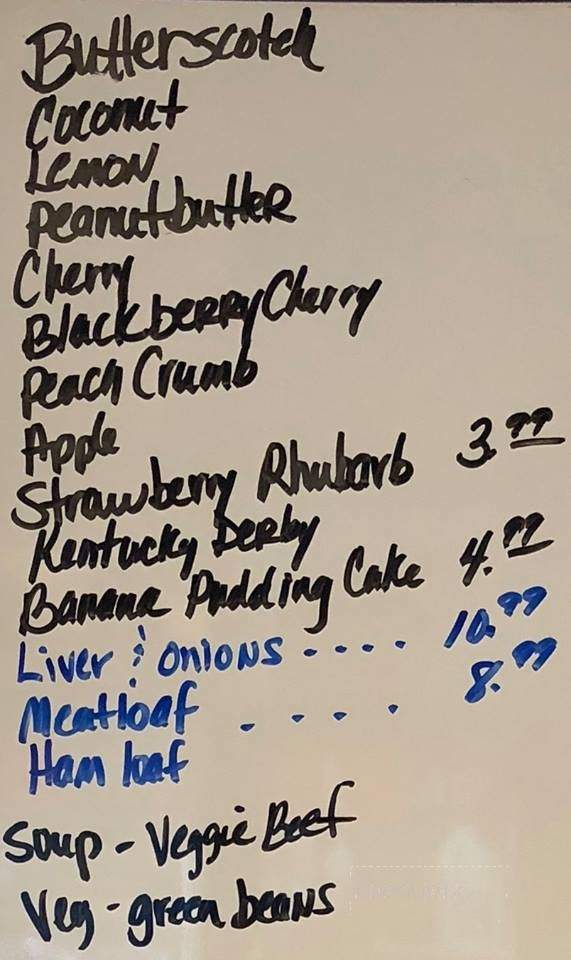 Butterscotch
Coconut
Lemon
Peanutbutter
Cherry
Blackberry Cherry
Peach Crumb
Apple
Strawberry Rhubarb 3.99
Kentucky Derby
Banana Pudding Cake 4.99
Liver & Onions .... 10.99
Meatloaf .... 8.99
Ham loaf
Soup - Veggie Beef
Veg - green beans